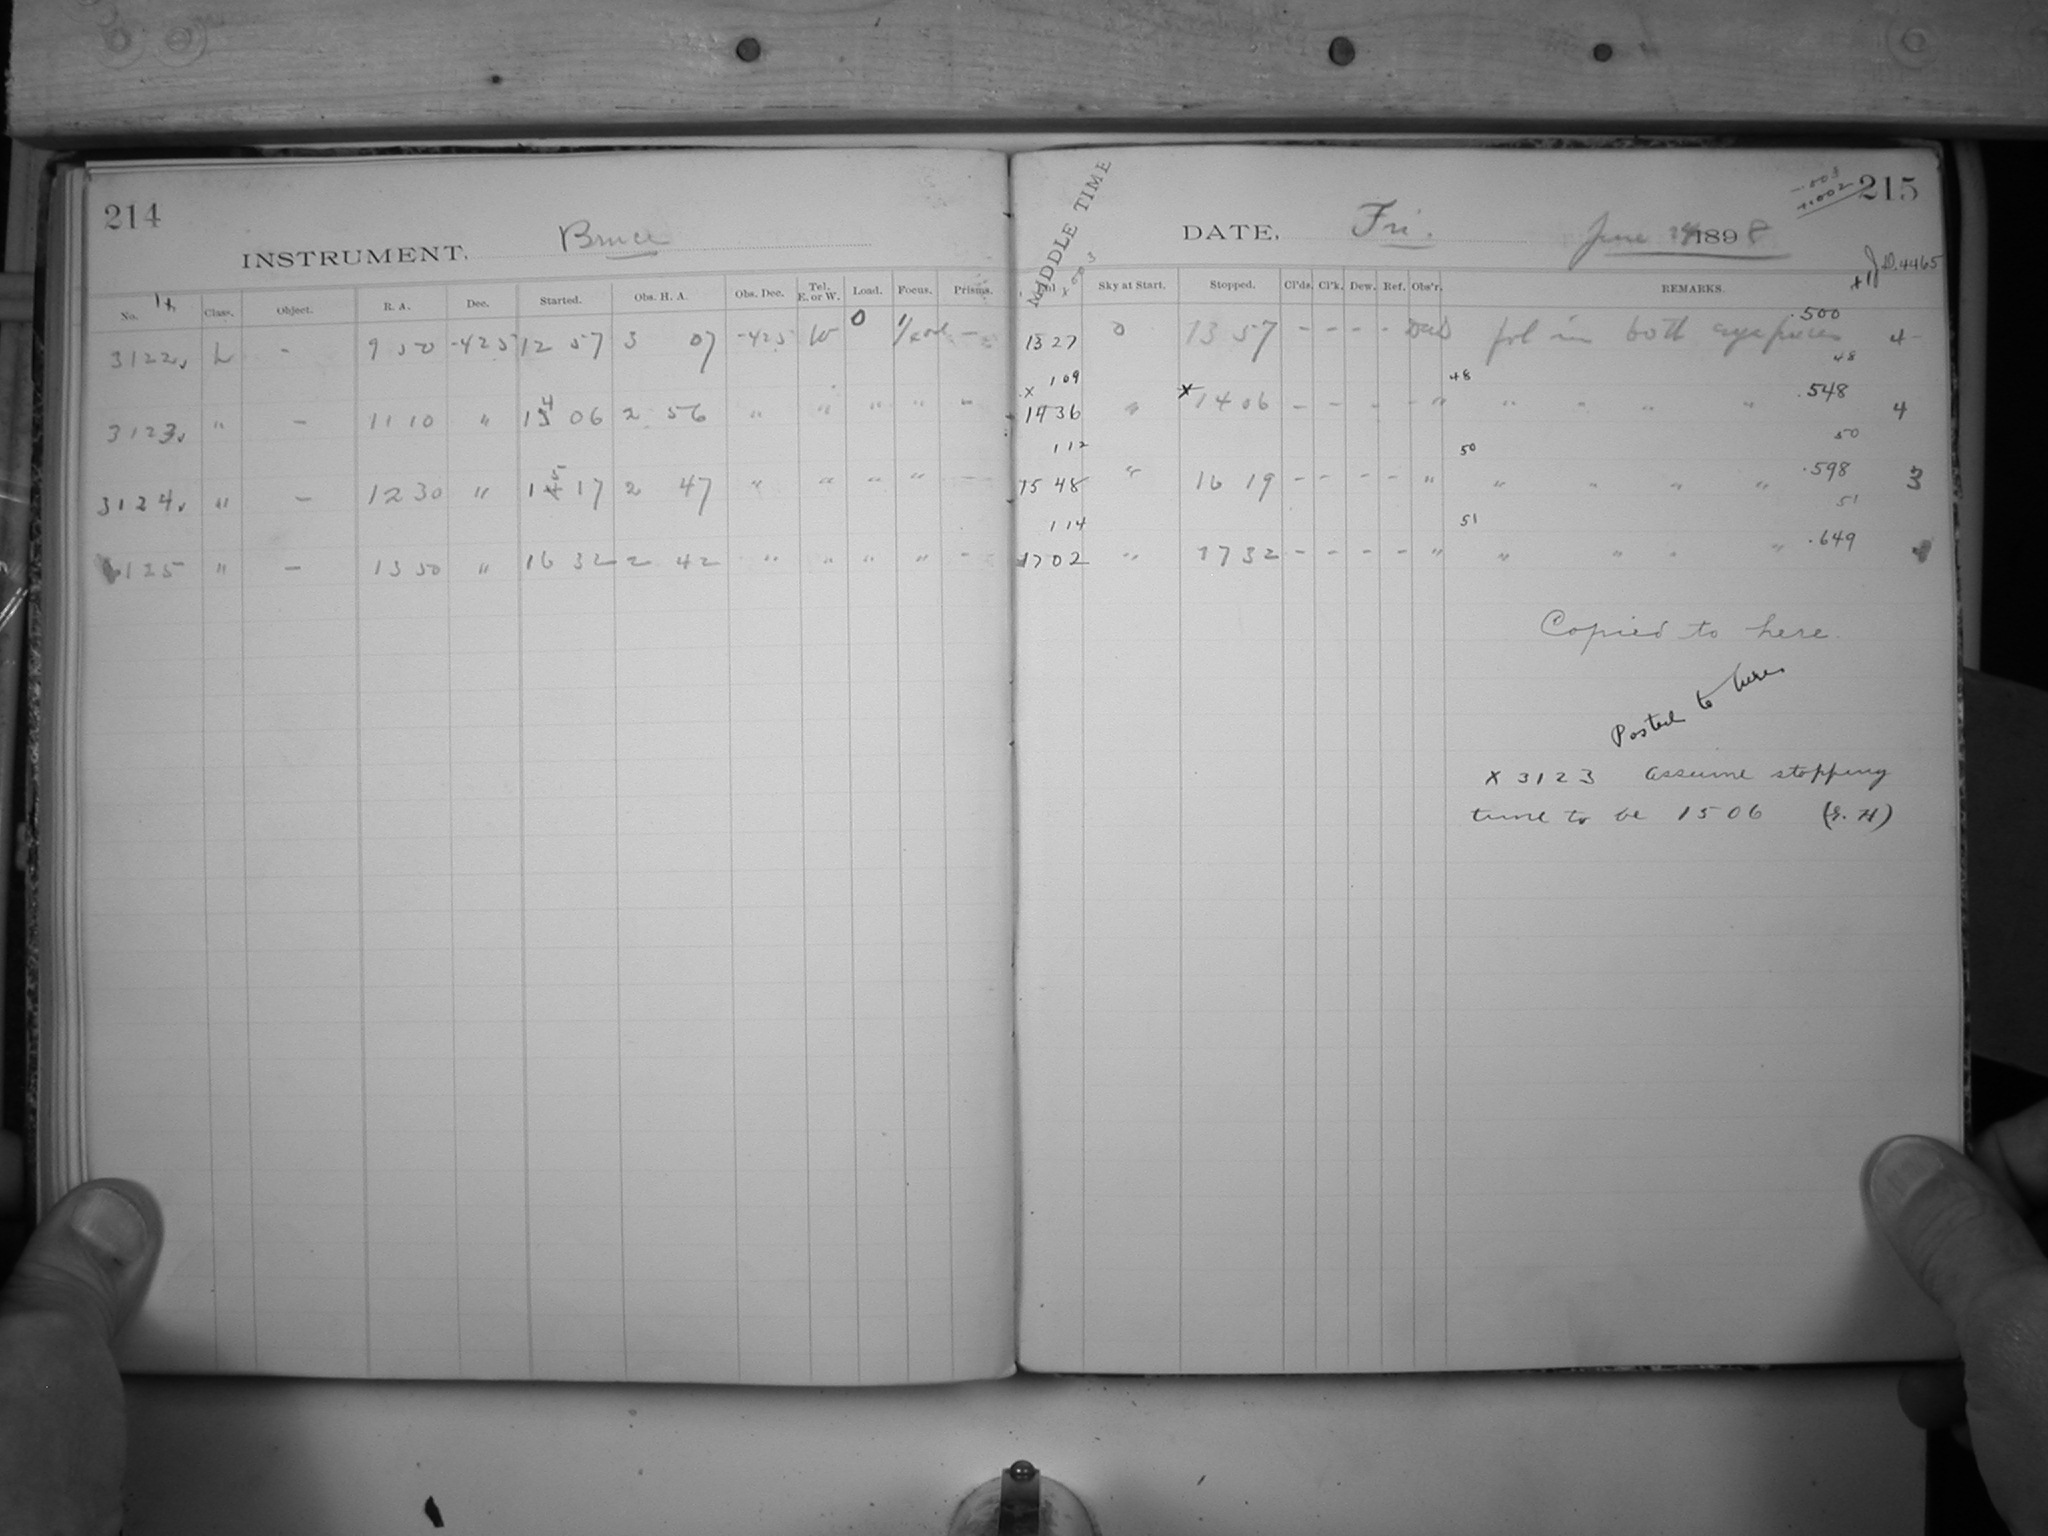 214
INSTRUMENT. Bruce
No. Class. Object. R. A. Dec. Started. Obs. H. A. Obs. Dec. Tel. E. or W. Load. Focus. Prisms.
3122 L - 9 50 -425 12 57 3 07 -425 W 0 -
3123 " - 11 10 " 14 06 2 56 " " " " -
3124 " - 12 30 " 15 17 2 47 " " " " -
3125 " - 13 50 " 16 32 2 42 " " " " -
215
-.003
+.002
MIDDLE TIME
DATE, Fri. June 24 1898
+1 J.D. 4465
Sky at Start. Stopped. Cl'ds. Cl'k. Dew. Ref. Obs'r. REMARKS.
.500
1327 0 13 57 - - - - fol in both eyepieces 4
109 48 48
x 1436 " x 1406 - - - - " " " " " .548 4
112 50 50
1548 " 16 19 - - - - " " " " " .598 3
114 51 51
1702 " 17 32 - - - - " " " " " .649
Copied to here.
Posted to here
x 3123 assume stopping
time to be 1506 (E. H)